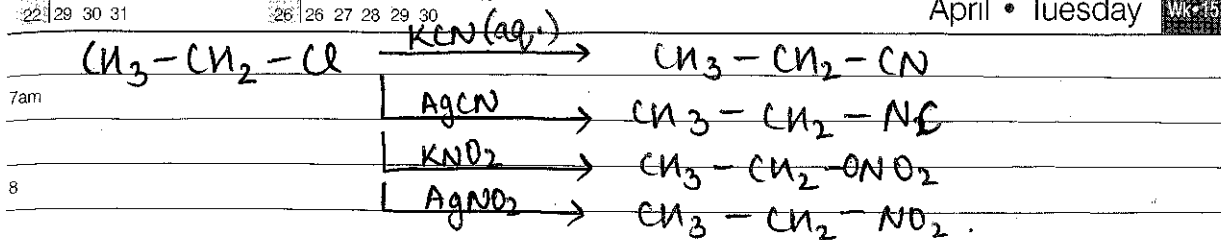 22 29 30 31 26 26 27 28 29 30 April • Tuesday Wk 15
CH3-CH2-Cl KCN(aq.) → CH3-CH2-CN
7am AgCN → CH3-CH2-NC
KNO2 → CH3-CH2-ONO2
8 AgNO2 → CH3-CH2-NO2.